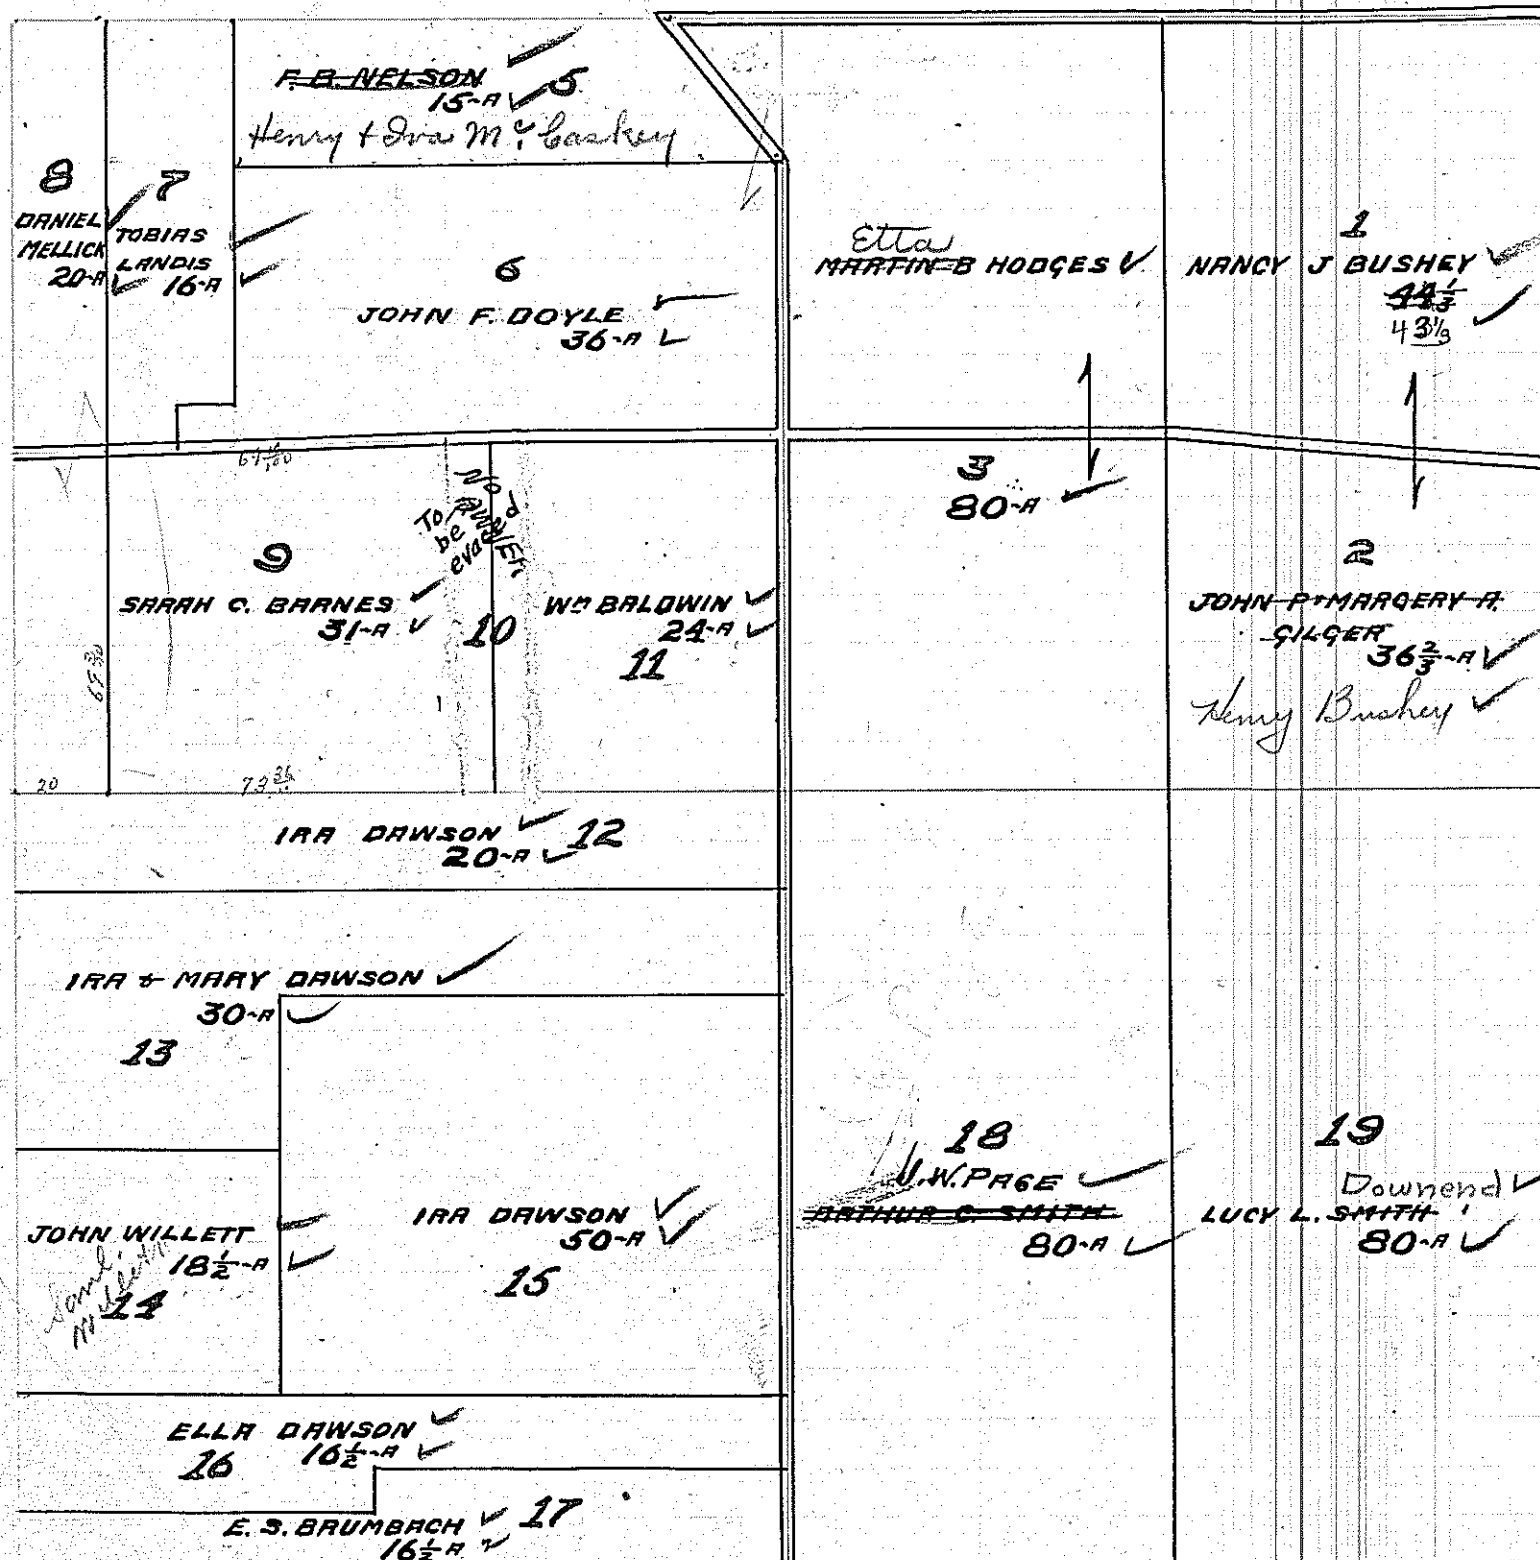 F. B. NELSON
15-A 5
Henry + Iva Mc Caskey
8
DANIEL
MELLICK
20-A
7
TOBIAS
LANDIS
16-A
6
JOHN F. DOYLE
36-A
Etta
MARTIN B HODGES
1
NANCY J BUSHEY
44 1/3
43 1/3
3
80-A
2
JOHN P + MARGERY A.
GILGER
36 2/3-A
Henry Bushey
9
SARAH C. BARNES
31-A
10
No
To be
evad
WM BALDWIN
24-A
11
20
IRA DAWSON 12
20-A
IRA & MARY DAWSON
30-A
13
JOHN WILLETT
18 1/2-A
14
IRA DAWSON
50-A
15
18
J.W. PAGE
ARTHUR C. SMITH
80-A
19
Downend
LUCY L. SMITH
80-A
ELLA DAWSON
16 16 1/2-A
E. S. BRUMBACH 17
16 1/2 A